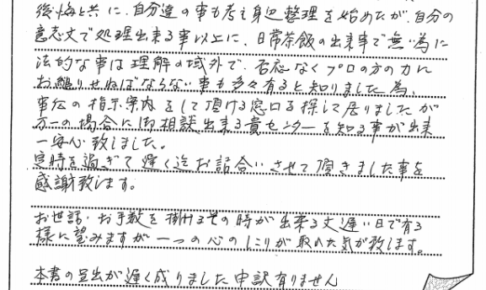 後悔と共に、自分達の事も考え身辺整理を始めたが、自分の
意志丈で処理出来る事以上に、日常茶飯の出来事で無い為に
法的な事は理解の域外で、否応なくプロの方の力に
お縋りせねばならない事も多々有ると知りました為、
事伝の指示案内をして頂ける窓口を探して居りましたが
万一の場合に御相談出来る貴センターを知る事が出来
一安心致しました。
定時を過ぎて遅く迄お話合いさせて頂きました事を
感謝致します。
お世話・お手数を掛けるその時が出来る丈遅い日で有る
様に望みますが一つの心のしこりが取れた気が致します。
本書の呈出が遅く成りました申訳有りません